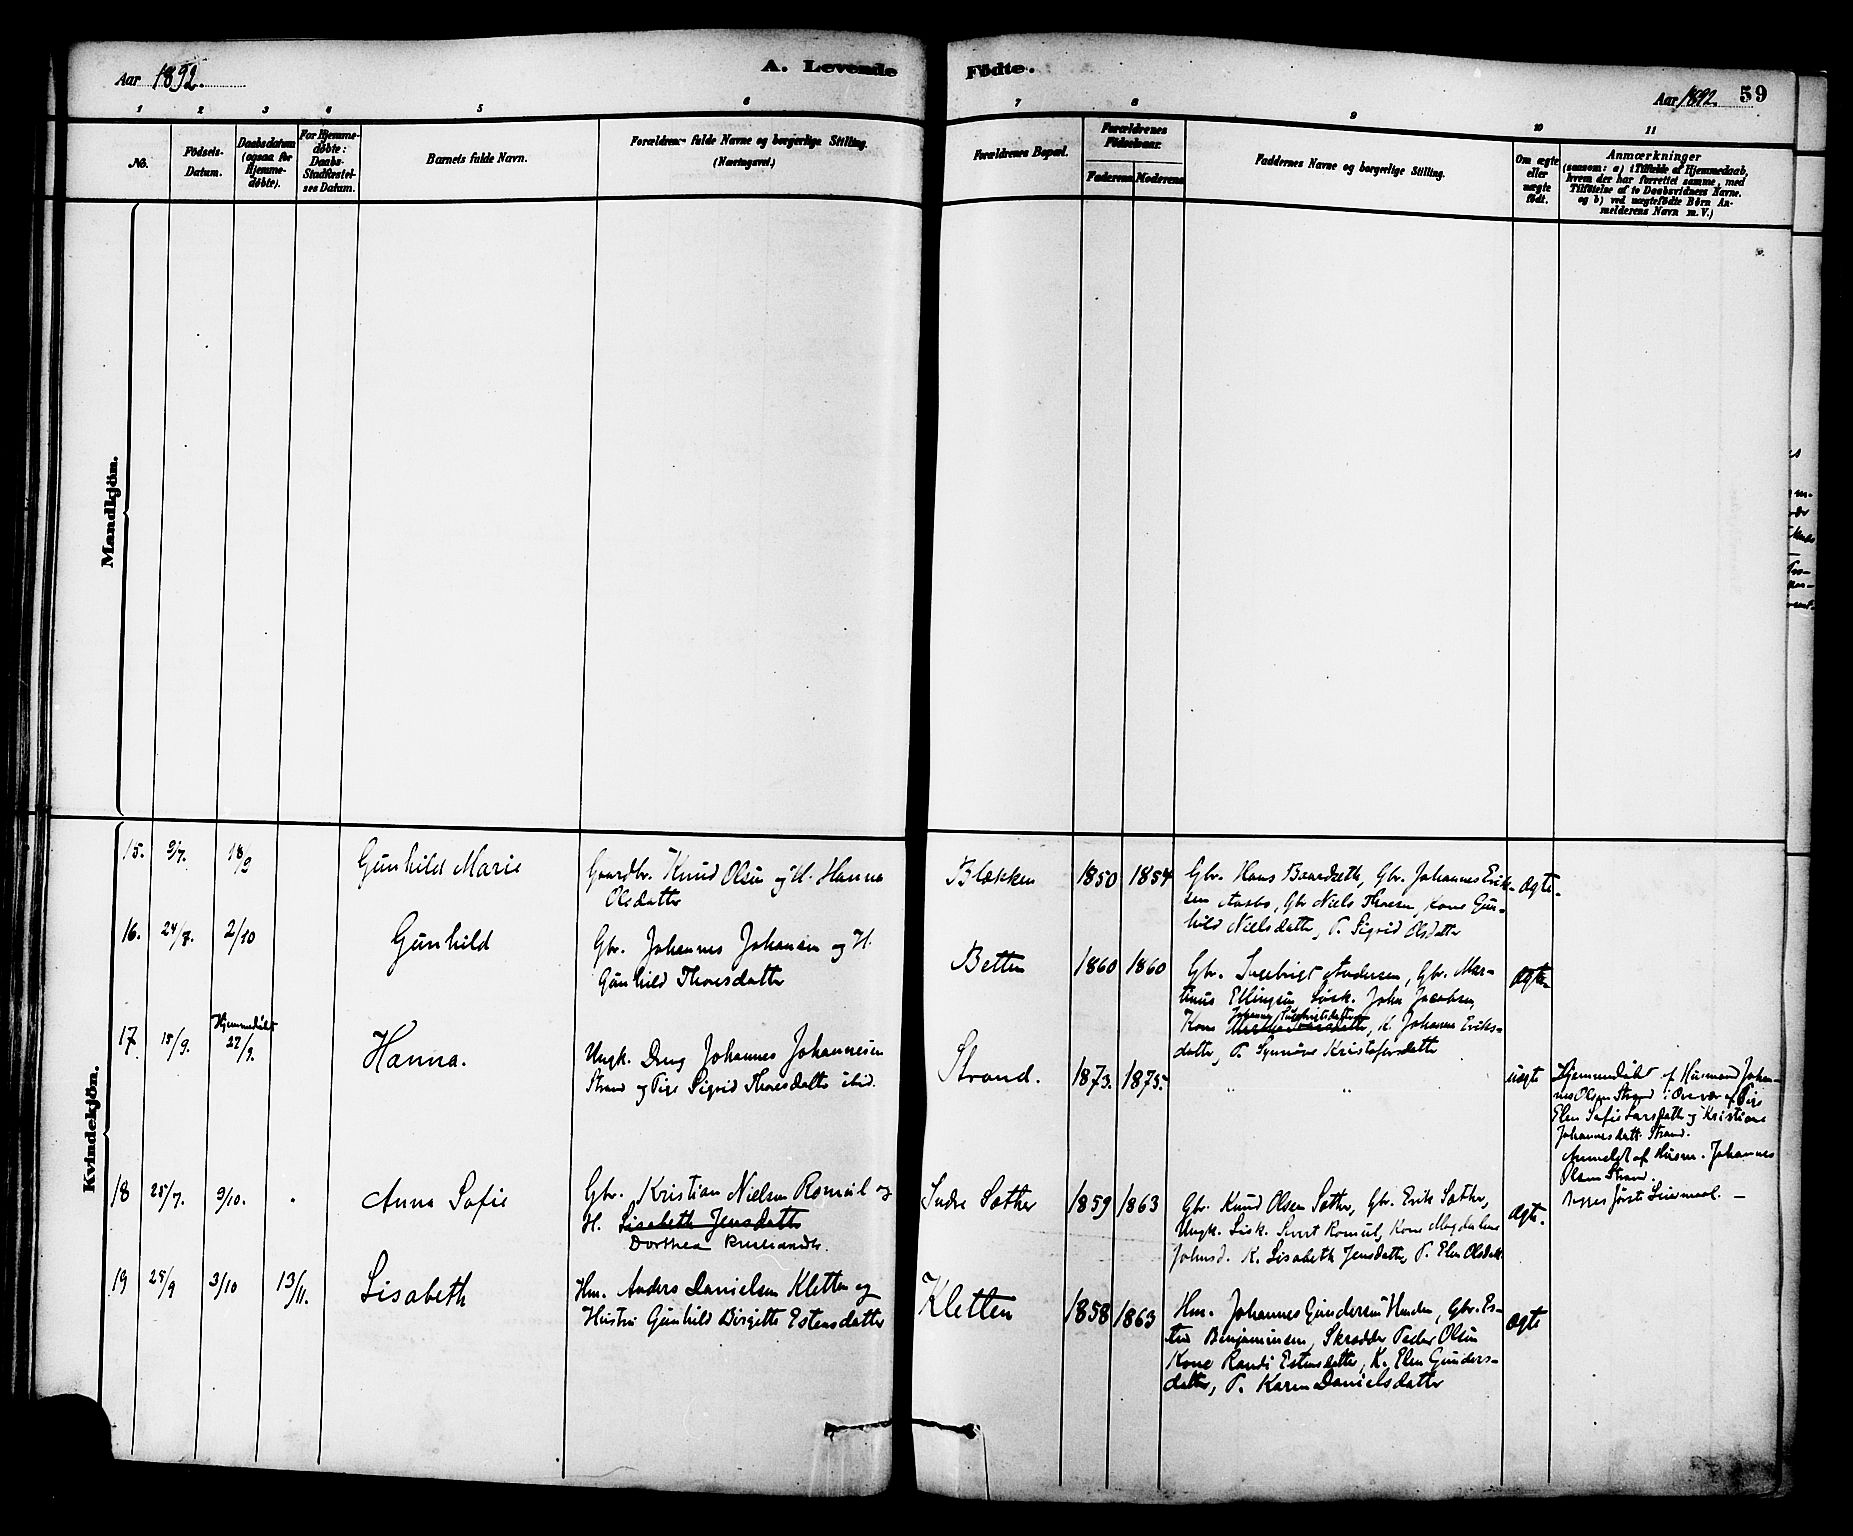 Aar 1892.
A. Levende Fødte.
Aar 1892. 59
1 2 3 4 5 6 7 8 9 10 11
No.
Födsels-
Datum.
Daabsdatum
(ogsaa for
Hjemme-
døbte).
For Hjemme-
døbte:
Daabs-
Stadfæstel-
ses Datum.
Barnets fulde Navn.
Forældrenes fulde Navne og borgerlige Stilling.
(Næringsvei.)
Forældrenes Bopæl.
Forældrenes
Födselsaar.
Faderens Moderens
Faddernes Navne og borgerlige Stilling.
Om ægte
eller
uægte
født.
Anmærkninger
(saasom: a) i Tilfælde af Hjemmedaab,
hvem der har forrettet samme, med
Tilføielse af to Daabsvidners Navne.
og b) ved uægtefødte Børn An-
melderens Navn m. V.)
Mandkjön.
Kvindekjön.
15. 9/7. 18/9 Gunhild Marie
Gaardbr. Knud Olsen og H. Hanna
Olsdatter
Blekken 1850 1854
Gbr. Hans Baardseth, Gbr. Johannes Erik-
sen Aasbø, Gbr Niels Thoesen, Kone Gun-
hild Nielsdatter, P. Sigrid Olsdatter
Ægte.
16. 24/8. 2/10 Gunhild
Gbr. Johannes Johansen og H.
Gunhild Thoresdatter
Betten 1860 1860
Gbr. Ingebrigt Andersen, Gbr. Mar-
tinus Ellingsen, Losk. John Jacobsen
Kone Ingebrigtsdatter, K. Johanna Eriks-
datter, P. Synnøve Kristofersdatter
Ægte
17 15/9. Hjemmedøbt
22/9. Hanna.
Ungk. Dreng Johannes Johannesen
Strand og Pige Sigrid Thoresdatter ibid.
Strand. 1873. 1875.
" "
uægte
Hjemmedøbt af Husmand Johan-
nes Olsen Strand i Overvær af Pige
Elen Sofie Larsdatter og Kristiane
Johannesdatt. Strand.
Anmeldt af Husm. Johannes
Olsen Strand.
Begges første Leiermaal. —
18 25/7. 9/10. Anna Sofie
Gbr. Kristian Nielsen Romuil og
H. Lisabeth Jensdatter
Dorthea Kristiansdtr.
Indre Sæther 1859 1863
Gbr. Knud Olsen Sæther, Gbr. Erik Sæther,
Ungk. Losk. Sivert Romuil, Kone Magdalene
Johnsd. K. Lisabeth Jensdatter, P. Elen Olsdatt.
Ægte.
19 25/9 3/10 13/11. Lisabeth
Hm. Anders Danielsen Kletten og
Hustru Gunhild Birgitte Estensdatter
Kletten 1858 1863
Hm. Johannes Gundersen Henden, Gbr. Es-
ten Benjaminsen, Skrædder Peder Olsen
Kone Randi Estensdatter, K. Elen Gunders-
datter, P. Karen Danielsdatter
Ægte